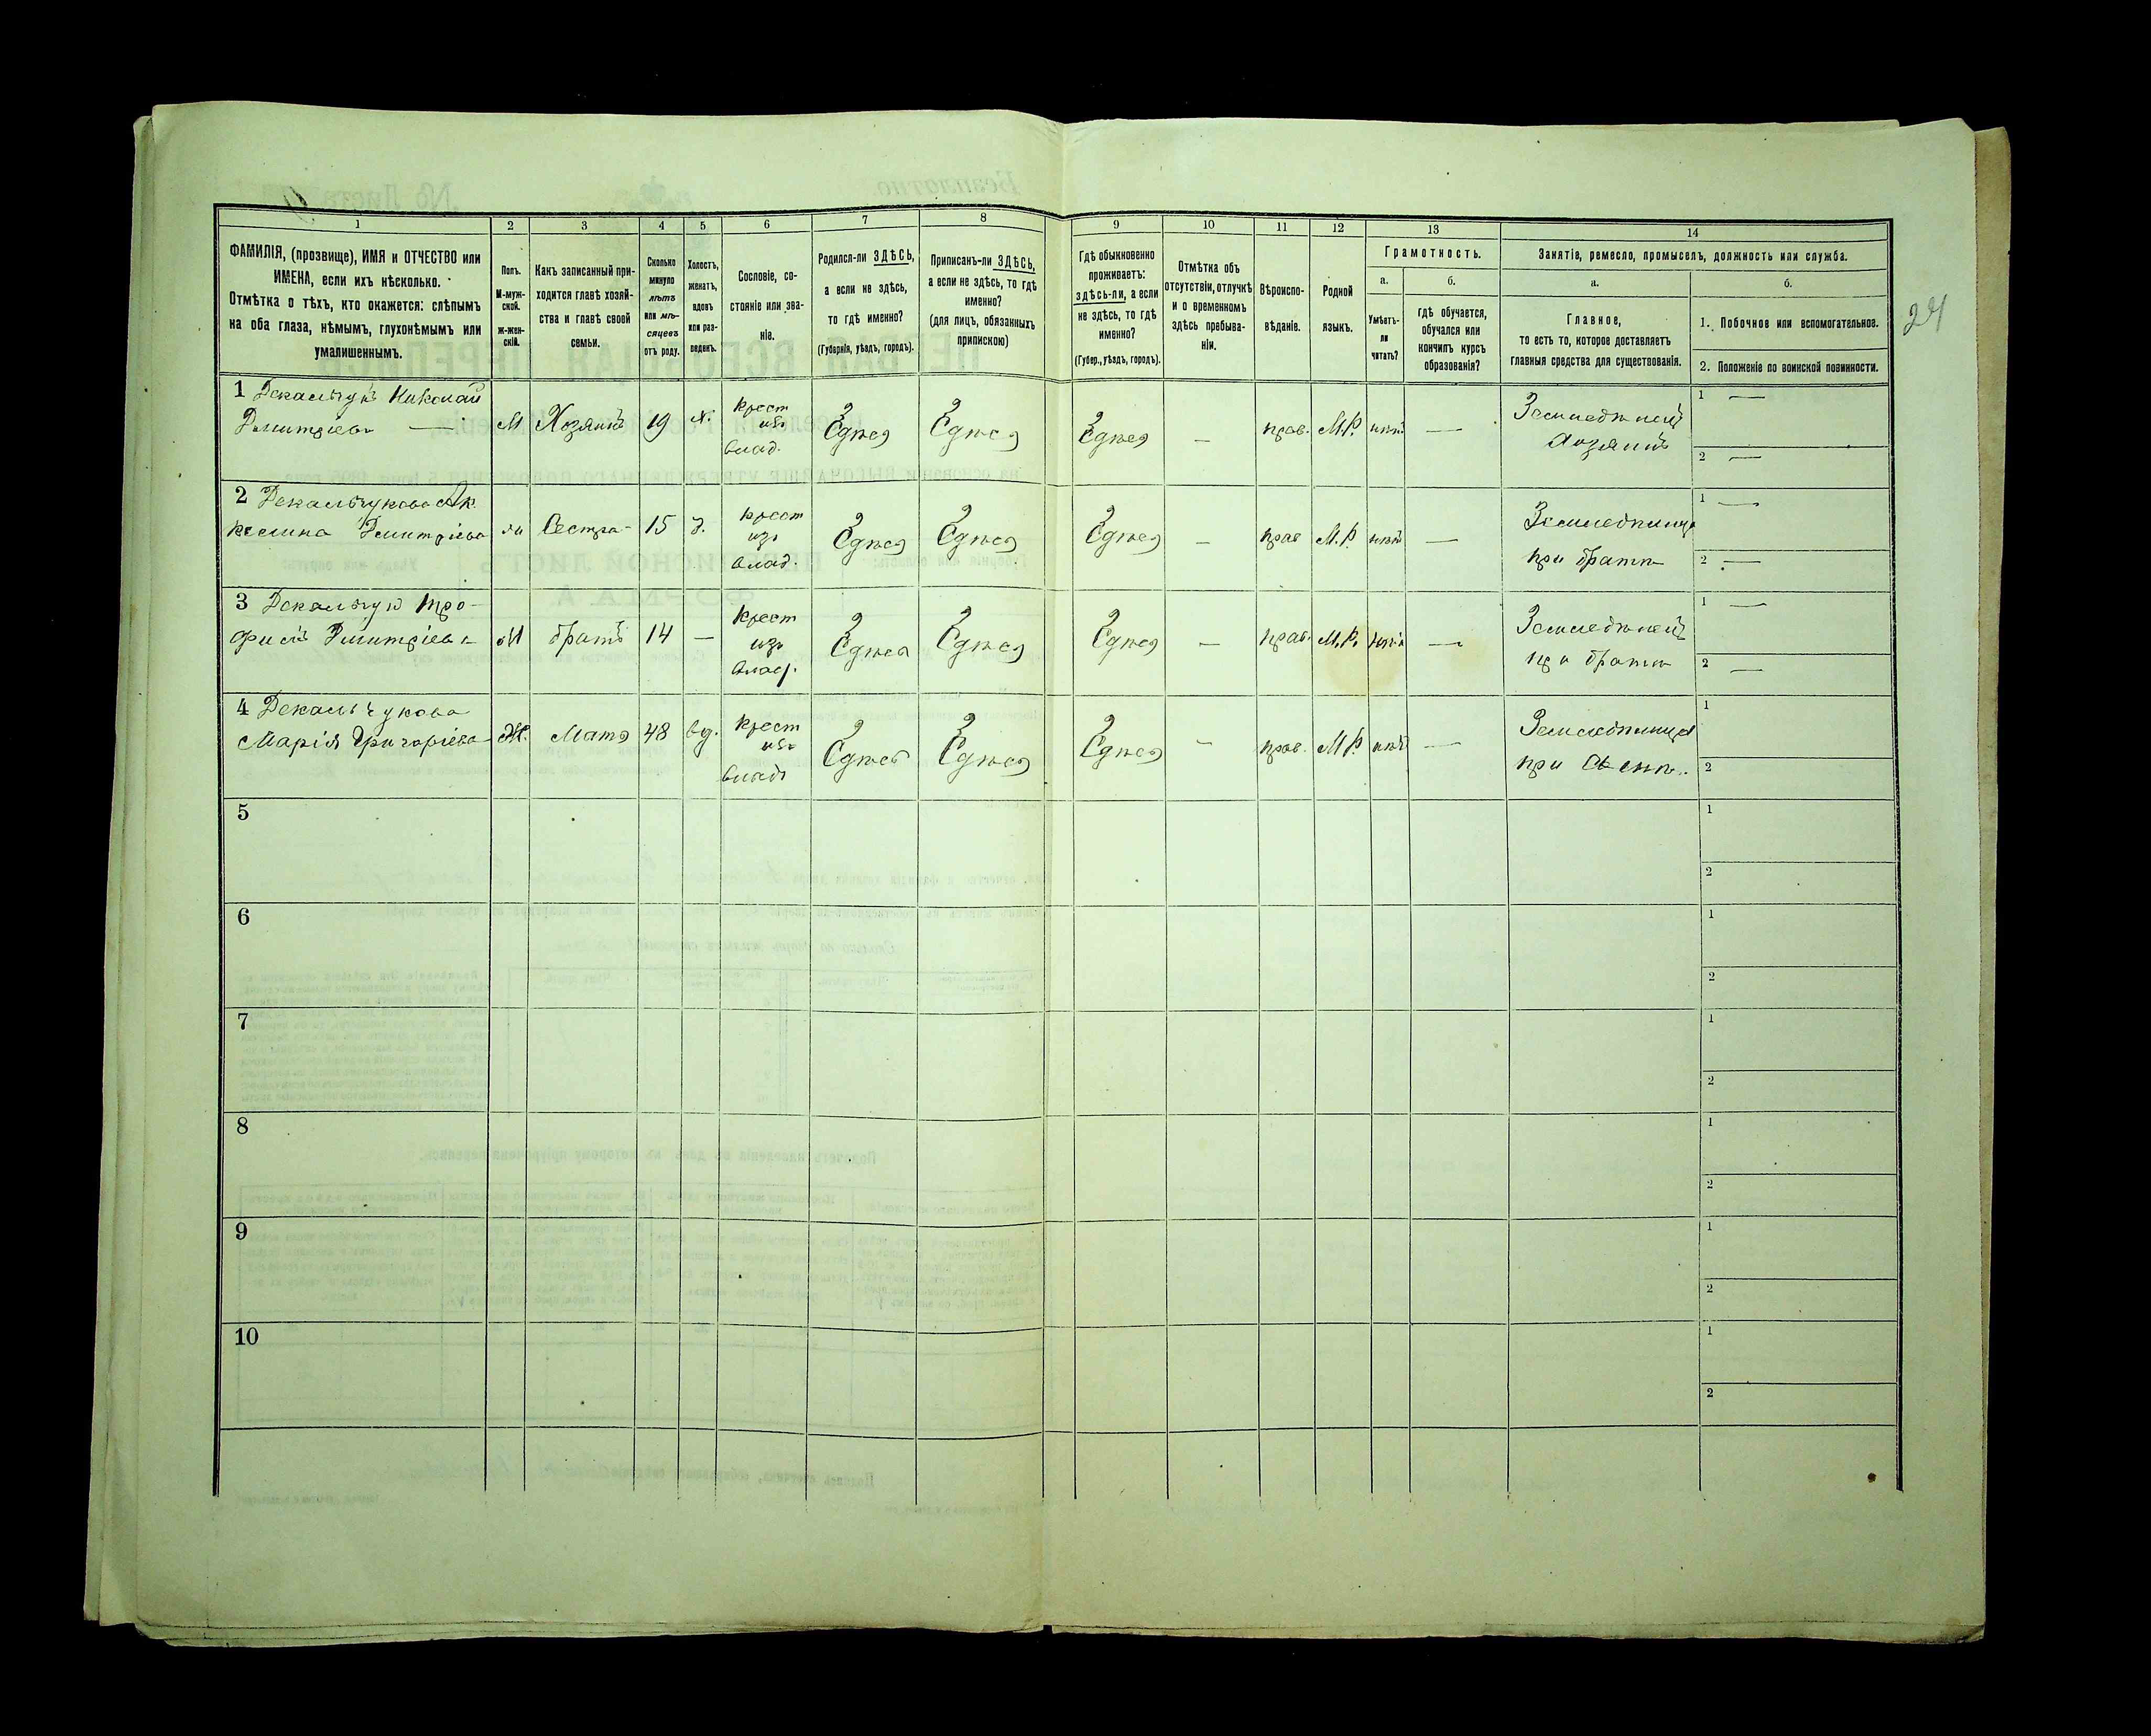 1 2 3 4 5 6 7 8 9 10 11 12 13 14
ФАМИЛІЯ, (прозвище), ИМЯ и ОТЧЕСТВО или
ИМЕНА, если ихъ нѣсколько.
Отмѣтка о тѣхъ, кто окажется: слѣпымъ
на оба глаза, нѣмымъ, глухонѣмымъ или
умалишеннымъ.
Полъ.
М-муж-
ской.
ж-жен-
скій.
Какъ записанный при-
ходится главѣ хозяй-
ства и главѣ своей
семьи.
Сколько
минуло
лѣтъ
или мѣ-
сяцевъ
отъ роду.
Холостъ,
женатъ,
вдовъ
или раз-
веденъ.
Сословіе, со-
стояніе или зва-
ніе.
Родился-ли ЗДѢСЬ,
а если не здѣсь,
то гдѣ именно?
(Губернія, уѣздъ, городъ).
Приписанъ-ли ЗДѢСЬ,
а если не здѣсь, то гдѣ
именно?
(для лицъ, обязанныхъ
припискою)
Гдѣ обыкновенно
проживаетъ:
здѣсь-ли, а если
не здѣсь, то гдѣ
именно?
(Губер., уѣздъ, городъ).
Отмѣтка объ
отсутствіи, отлучкѣ
и о временномъ
здѣсь пребыва-
ніи.
Вѣроиспо-
вѣданіе.
Родной
языкъ.
Грамотность.
а.
Умѣетъ-
ли
читать?
б.
гдѣ обучается,
обучался или
кончилъ курсъ
образованія?
Занятіе, ремесло, промыселъ, должность или служба.
а.
Главное,
то есть то, которое доставляетъ
главныя средства для существованія.
б.
1. Побочное или вспомогательное.
2. Положеніе по воинской повинности.
24
1 Декальчукъ Николай
Дмитріевъ —
М Хозяинъ 19 х.
крест
изъ
влад.
Здѣсь Здѣсь Здѣсь — прав. М.Р. нѣтъ —
Земледѣлецъ
Хозяинъ
1 —
2 —
2 Декальчукова Ак
келина Дмитріева
ж Сестра 15 д.
крест
изъ
влад.
Здѣсь Здѣсь Здѣсь — прав М.Р. нѣтъ —
Земледѣлица
при братѣ
1 —
2 —
3 Декальчукъ Тро-
фимъ Дмитріевъ
М братъ 14 —
крест
изъ
влад.
Здѣсь Здѣсь Здѣсь — прав. М.Р. нѣтъ —
Земледѣлецъ
при братѣ
1 —
2 —
4 Декальчукова
Марія Григоріева
Ж. Мать 48 вд.
крест
изъ
влад
Здѣсь Здѣсь Здѣсь — прав. М.Р. нѣтъ —
Земледѣлица
при сынѣ.
1
2
5
1
2
6
1
2
7
1
2
8
1
2
9
1
2
10
1
2